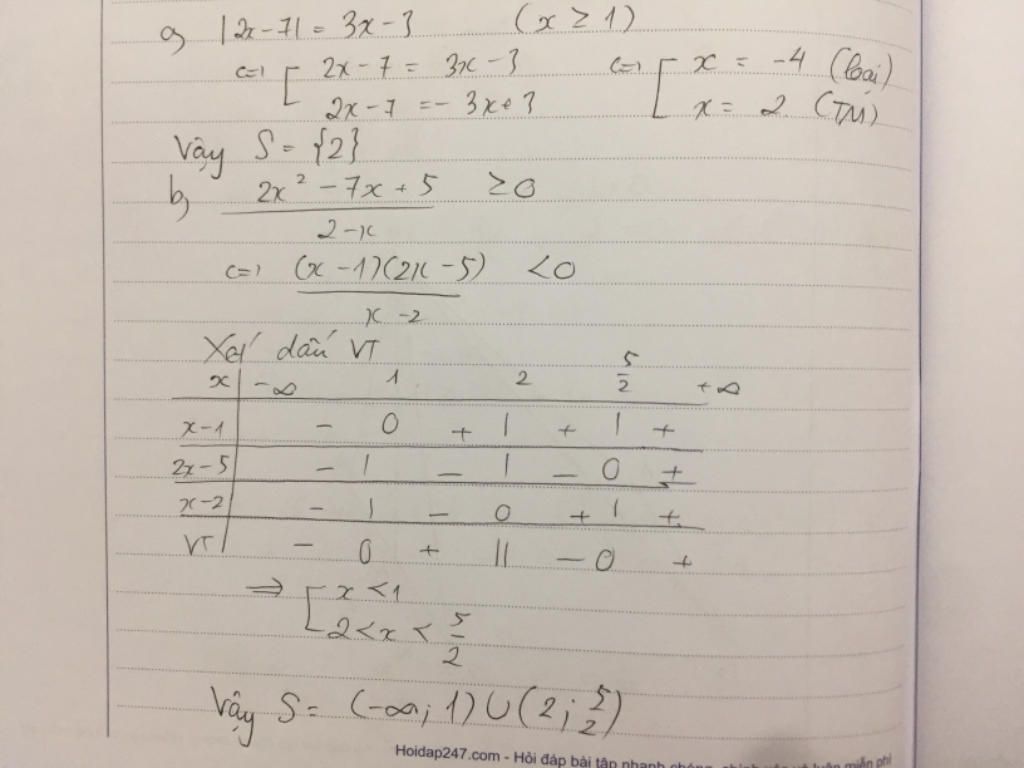 a) |2x-7| = 3x-3 (x ≥ 1)
<=> [ 2x-7 = 3x-3 <=> [ x = -4 (loại)
2x-7 = -3x+3 x = 2 (TM)
Vậy S = {2}
b) 2x² - 7x + 5 ≥ 0
2-x
<=> (x-1)(2x-5) < 0
x-2
Xét dấu VT
x -∞ 1 2 5/2 +∞
x-1 - 0 + | + | +
2x-5 - | - | - 0 +
x-2 - | - 0 + | +
VT - 0 + || - 0 +
=> [ x < 1
2 < x < 5/2
Vậy S = (-∞; 1) ∪ (2; 5/2)
Hoidap247.com - Hỏi đáp bài tập nhanh chóng, chính xác và luôn miễn phí